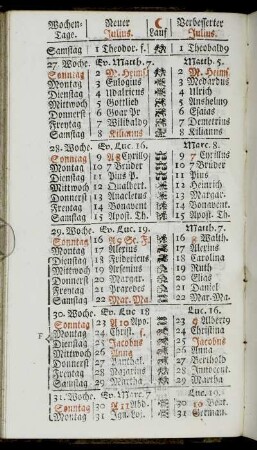 Wochen- Neuer ☾ Verbesserter
Tage. Julius. Lauf Julius.
Samstag 1 Theodor. s. 1 Theobald9
27. Woche. Ev. Matth. 7. Matth. 5.
Sonntag 2 M. Heims. 2 M. Heims.
Montag 3 Eulogius 3 Medardus
Dienstag 4 Udalricus 4 Ulrich
Mittwoch 5 Gottlieb 5 Anshelm9
Donnerst 6 Goar Pr. 6 Esaias
Freytag 7 Wilibald9 7 Demetrius
Samstag 8 Kilianus 8 Kilianus
28. Woche. Ev. Luc. 16. Marc. 8.
Sonntag 9 Cyrill9 9 7 Cyrillus
Montag 10 7 Brüder 10 7 Brüder
Dienstag 11 Pius P. 11 Pius
Mittwoch 12 Gualbert. 12 Heinrich
Donnerst 13 Anacletus 13 Margar.
Freytag 14 Bonavent 14 Bonavent.
Samstag 15 Apost. Th. 15 Apost. Th.
29. Woche. Ev. Luc. 19. Matth. 7.
Sonntag 16 16 8 Walth.
Montag 17 Alexius 17 Alexius
Dienstag 18 Fridericus 18 Carolina
Mittwoch 19 Arsenius 19 Ruth
Donnerst 20 Margar. 20 Elias
Freytag 21 Praxedes 21 Daniel
Samstag 22 Mar. Ma. 22 Mar. Ma.
30. Woche. Ev. Luc 18 Luc. 16.
Sonntag 23 A 10 Apo. 23 9 Albert9
Montag 24 Christ. 24 Christina
F Dienstag 25 Jacobus 25 Jacobus
Mittwoch 26 Anna 26 Anna
Donnerst 27 Panthal. 27 Berthold
Freytag 28 Nazarius 28 Innocent.
Samstag 29 Martha 29 Martha
31. Woche. Ev. Marc. 7 Luc. 19.
Sonntag 30 A 11 Abd. 30 10
Montag 31 Ign. Loj. 31 German.